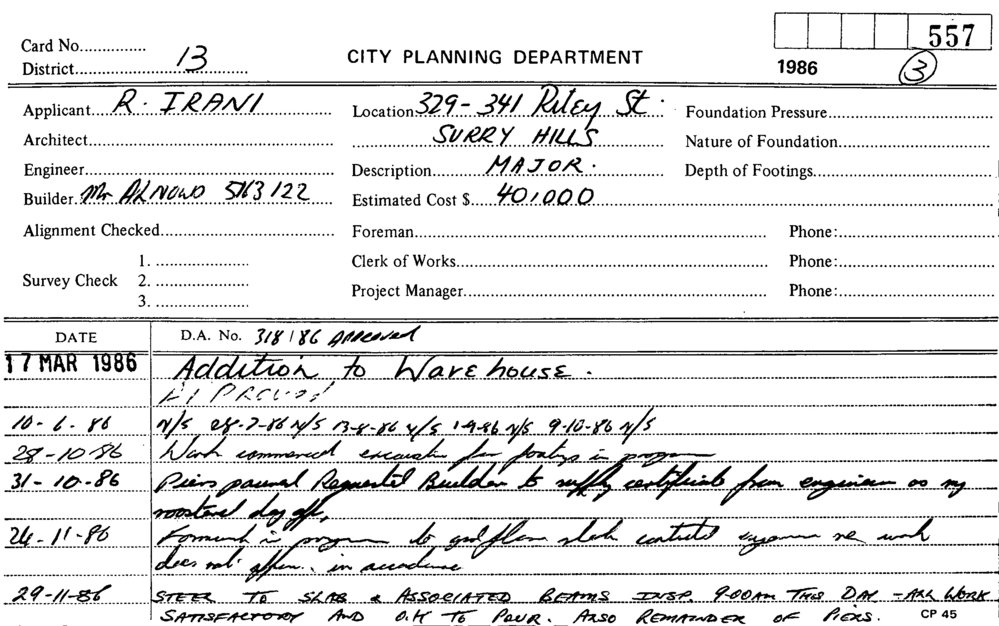 557
Card No...............
District 13
CITY PLANNING DEPARTMENT
1986 3
Applicant R. IRANI
Location 329-341 Riley St.
Foundation Pressure
Architect
SURRY HILLS
Nature of Foundation
Engineer
Description MAJOR.
Depth of Footings
Builder Mr 5163122
Estimated Cost $ 401000
Alignment Checked
Foreman
Phone:
Survey Check
1.
2.
3.
Clerk of Works
Phone:
Project Manager
Phone:
DATE
D.A. No. 318/86 Approved
17 MAR 1986
Addition to Warehouse.
APPROVED
10-6-86 N/S 28-7-86 N/S 13-8-86 N/S 1-9-86 N/S 9-10-86 N/S
28-10-86 Work commenced excavation for footings in program
31-10-86 Piers poured Requested Builder to supply certificate from engineer as my
roostered day off,
24-11-86 Formwork in program to grd floor slab work
does not in accordance
29-11-86 STEEL TO SLAB & ASSOCIATED BEAMS INSP. 9.00AM THIS DAY - ALL WORK
SATISFACTORY AND O.K TO POUR. ALSO REMAINDER OF PIERS.
CP 45